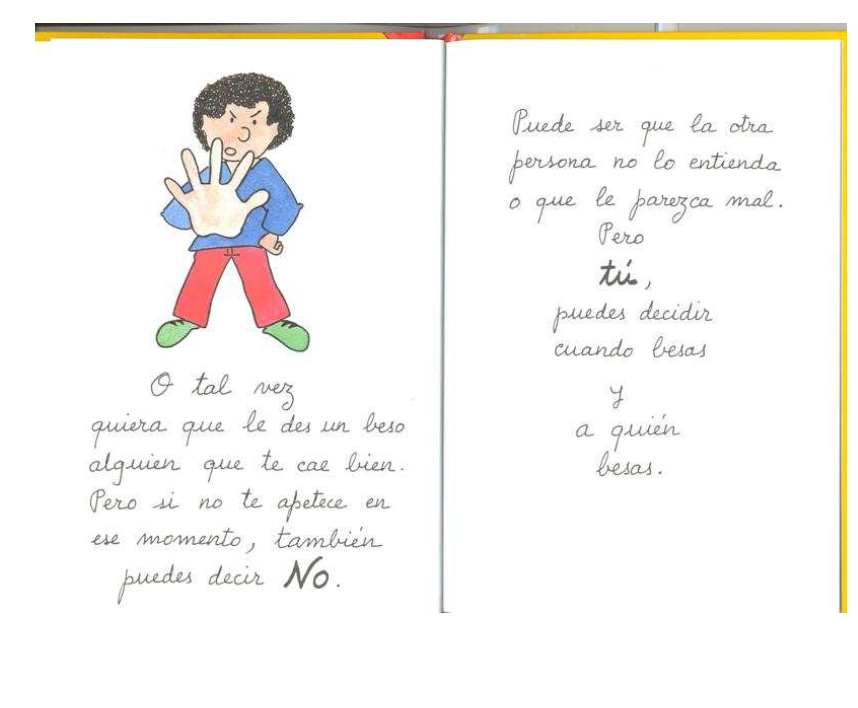 O tal vez
quiera que le des un beso
alguien que te cae bien.
Pero si no te apetece en
ese momento, también
puedes decir NO.
Puede ser que la otra
persona no lo entienda
o que le parezca mal.
Pero
tú,
puedes decidir
cuando besas
y
a quién
besas.